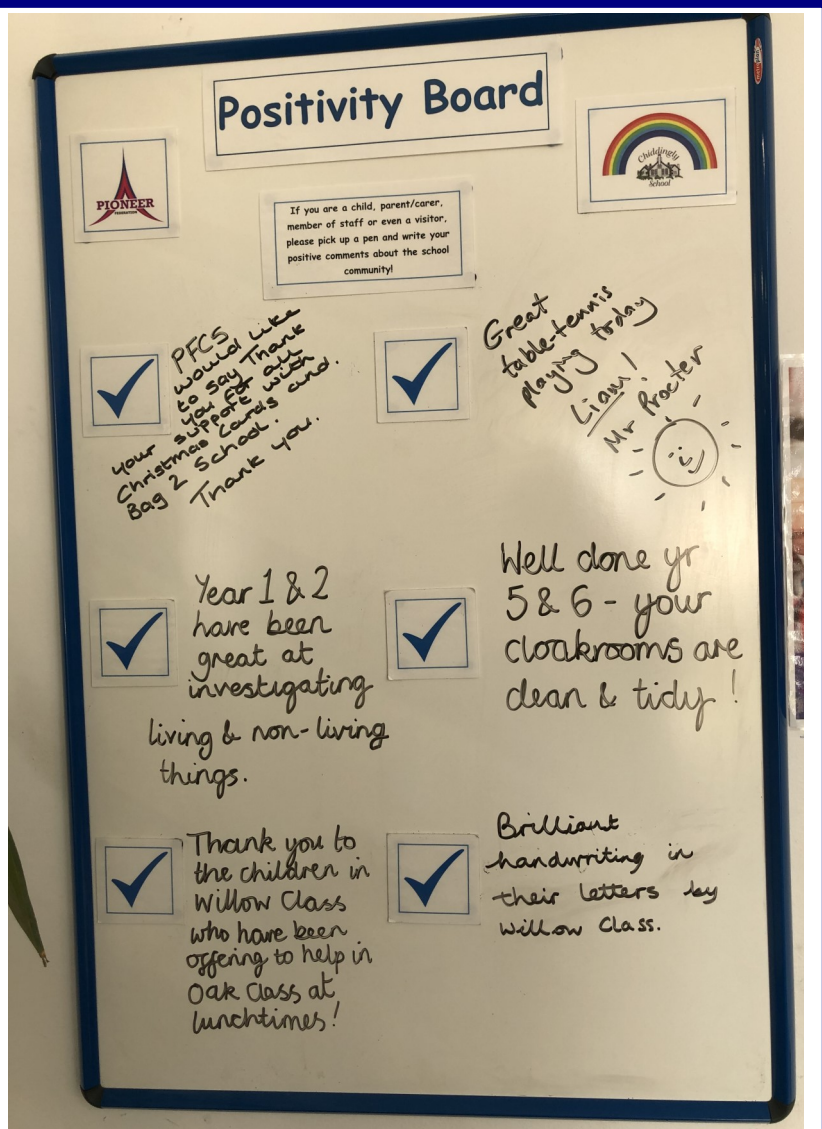 Positivity Board
PIONEER
FEDERATION
Chiddingly
School
If you are a child, parent/carer,
member of staff or even a visitor,
please pick up a pen and write your
positive comments about the school
community!
PFCS
would like
to say Thank
you for all
your support with
Christmas Cards and
Bag 2 School.
Thank you.
Great
table-tennis
playing today
Liam!
Mr Procter
Year 1 & 2
have been
great at
investigating
living & non-living
things.
Well done yr
5 & 6 - your
cloakrooms are
clean & tidy!
Thank you to
the children in
Willow Class
who have been
offering to help in
Oak Class at
lunchtimes!
Brilliant
handwriting in
their letters by
Willow Class.